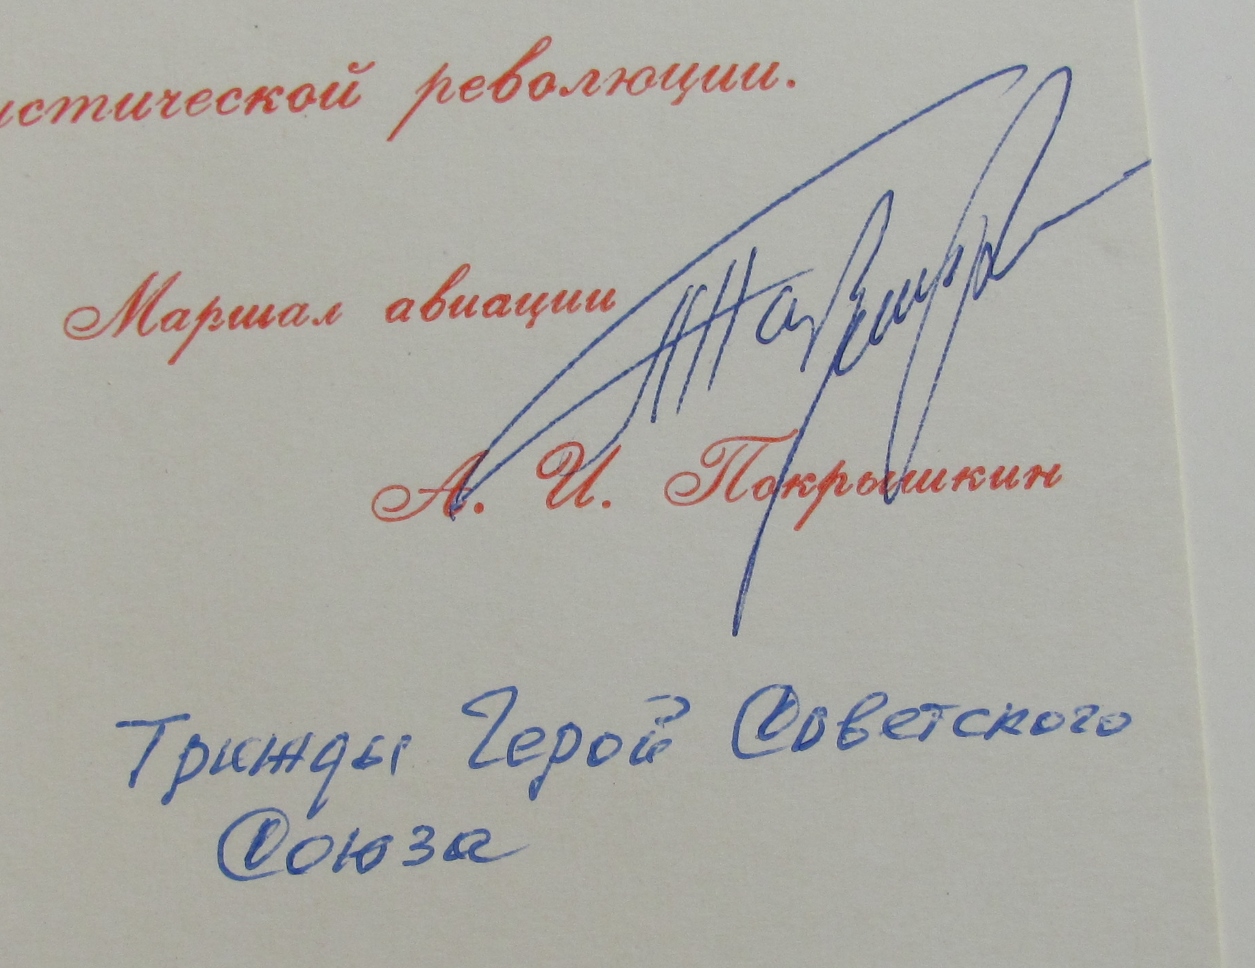 истической революции.
Маршал авиации
А. И. Покрышкин
Трижды Герой Советского
Союза